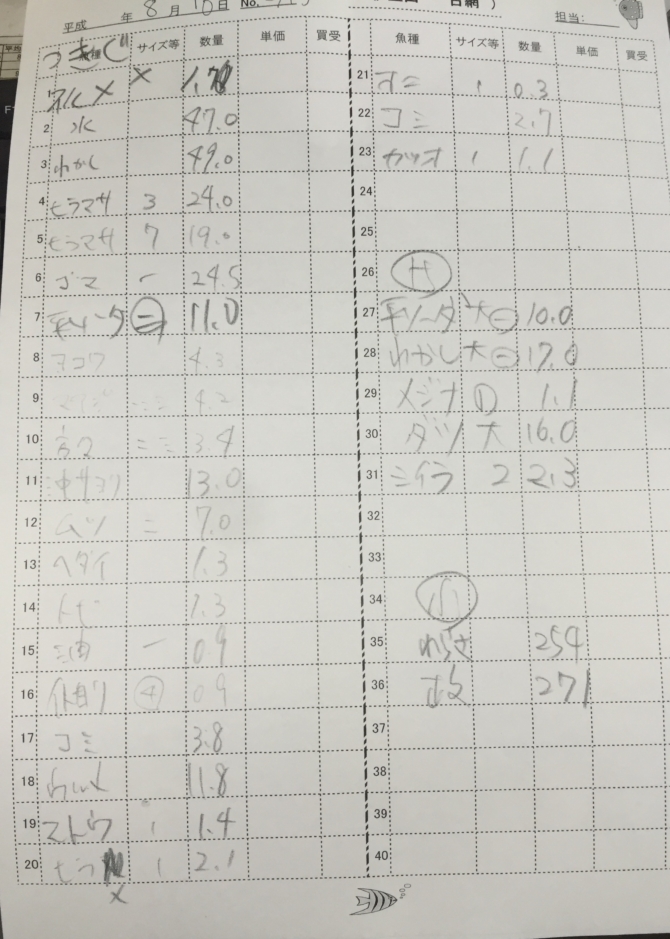 平成 年 8月 10日 No.
担当:
魚種 サイズ等 数量 単価 買受
1
2 水 47.0
3 わかし 49.0
4 ヒラマサ 3 24.0
5 ヒラマサ 7 19.0
6 ゴマ 一 24.5
7 平ソータ ㊁ 11.0
8 ヨコワ 4.3
9 4.2
10 3.4
11 沖サヨリ 13.0
12 ムツ 二 7.0
13 ヘダイ 1.3
14 トビ 1.3
15 一 0.9
16 ④ 0.9
17 コミ 3.8
18 11.8
19 マトウ 1 1.4
20 ヒラ 1 2.1
×
魚種 サイズ等 数量 単価 買受
21 オニ 1 0.3
22 コミ 2.7
23 カツオ 1 1.1
24
25
26
27 平ソータ 大㊁ 10.0
28 わかし 大㊁ 17.0
29 メジナ ① 1.1
30 ダツ 大 16.0
31 シイラ 2 2.3
32
33
34 小
35 わらさ 254
36 271
37
38
39
40